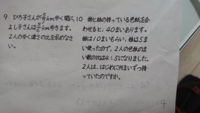 9 ひろ子さんが
mゆく間に,
よし子さんは
mゆきます。
2人のゆく速さの比を求めなさ
い。
10 姉と妹の持っている色紙を合
わせると、40まいあります。
姉は10まいもらい、妹は5ま
い使ったので、2人の色紙のま
い数の比は4:5になりました。
2人は、はじめに何まいずつ持
っていたのですか。